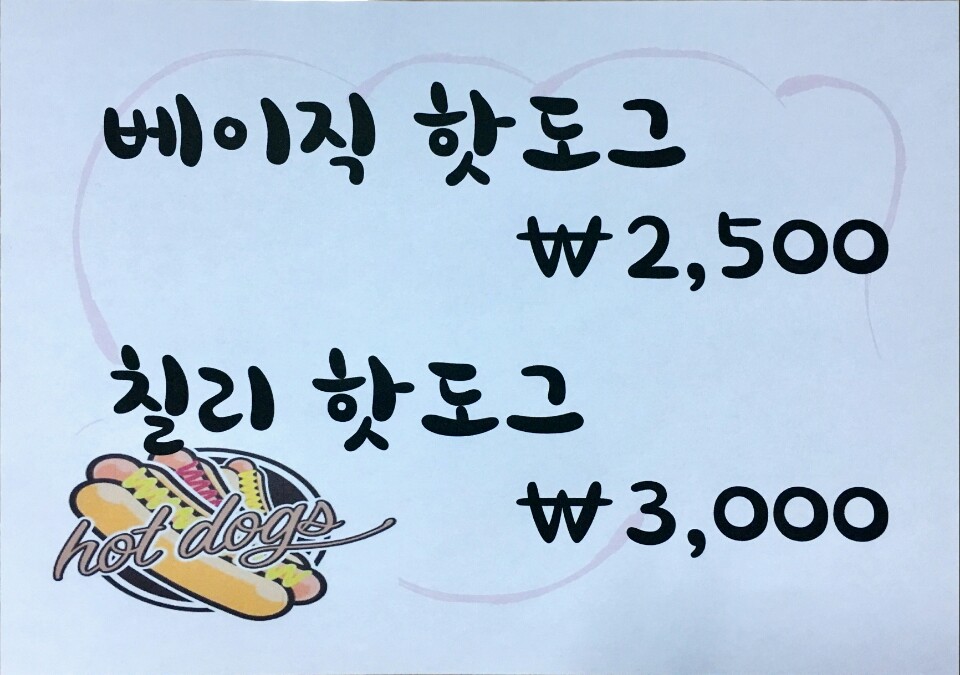 베이직 핫도그
₩2,500
칠리 핫도그
₩3,000
hot dogs